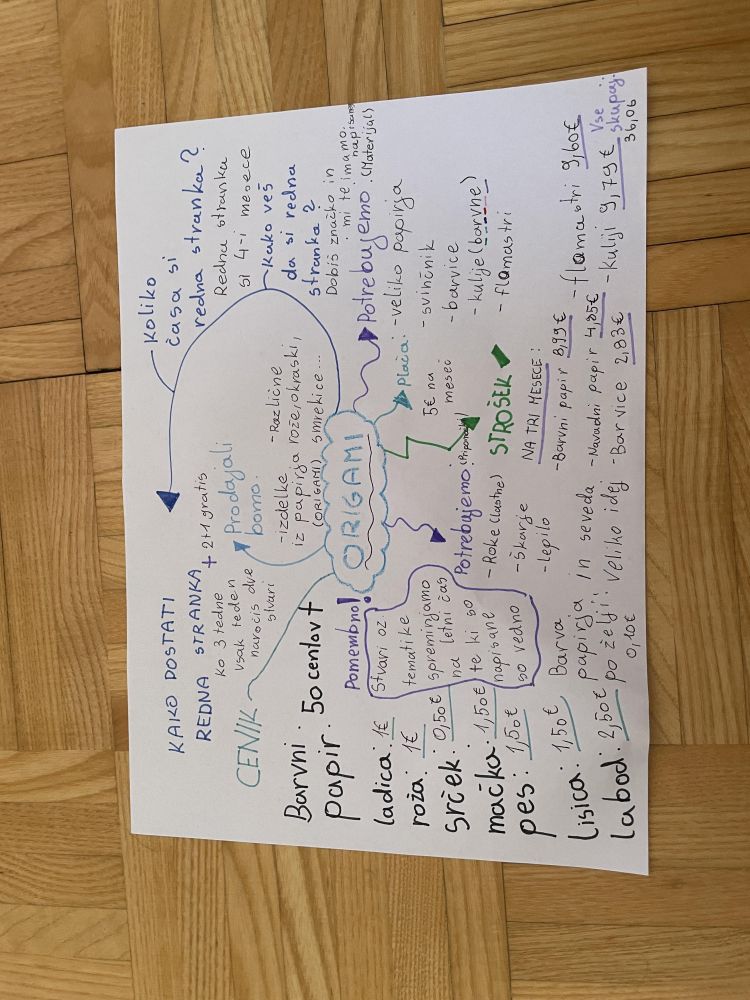 KAKO DOSTATI
REDNA STRANKA + 2+1 gratis
Ko 3 tedne
vsak teden
naročiš dve
stvari
Koliko
časa si
redna stranka?
Redna stranka
si 4-i mesece
Kako veš
da si redna
stranka?
Dobiš značko in
mi te imamo
napisano.
Prodajali
bomo:
-izdelke
iz papirja
(ORIGAMI)
-Različne
rože, okraski,
smrekice...
ORIGAMI
CENIK
Barvni
papir: 50 centov t
ladica: 1€
roža: 1€
srček: 0,50€
mačka: 1,50€
pes: 1,50€
lisica: 1,50€
labod: 2,50€
Pomembno!
Stvari oz
tematike
spreminjamo
na letni čas
te ki so
napisane
so vedno
Barva
papirja in seveda
po želji! Veliko idej
0,10€
Potrebujemo:
-Roke (lastne)
-škarje
-lepilo
Plača:
5€ na
mesec
Potrebujemo: (Material)
-veliko papirja
-svinčnik
-barvice
-kulije (barvne)
-flamastri
STROŠEK
NA TRI MESECE:
-Barvni papir 8,99€
-Navadni papir 4,85€
-Barvice 2,83€
-flamastri 9,60€
-Kuliji 9,79€
Vse
skupaj:
36,06